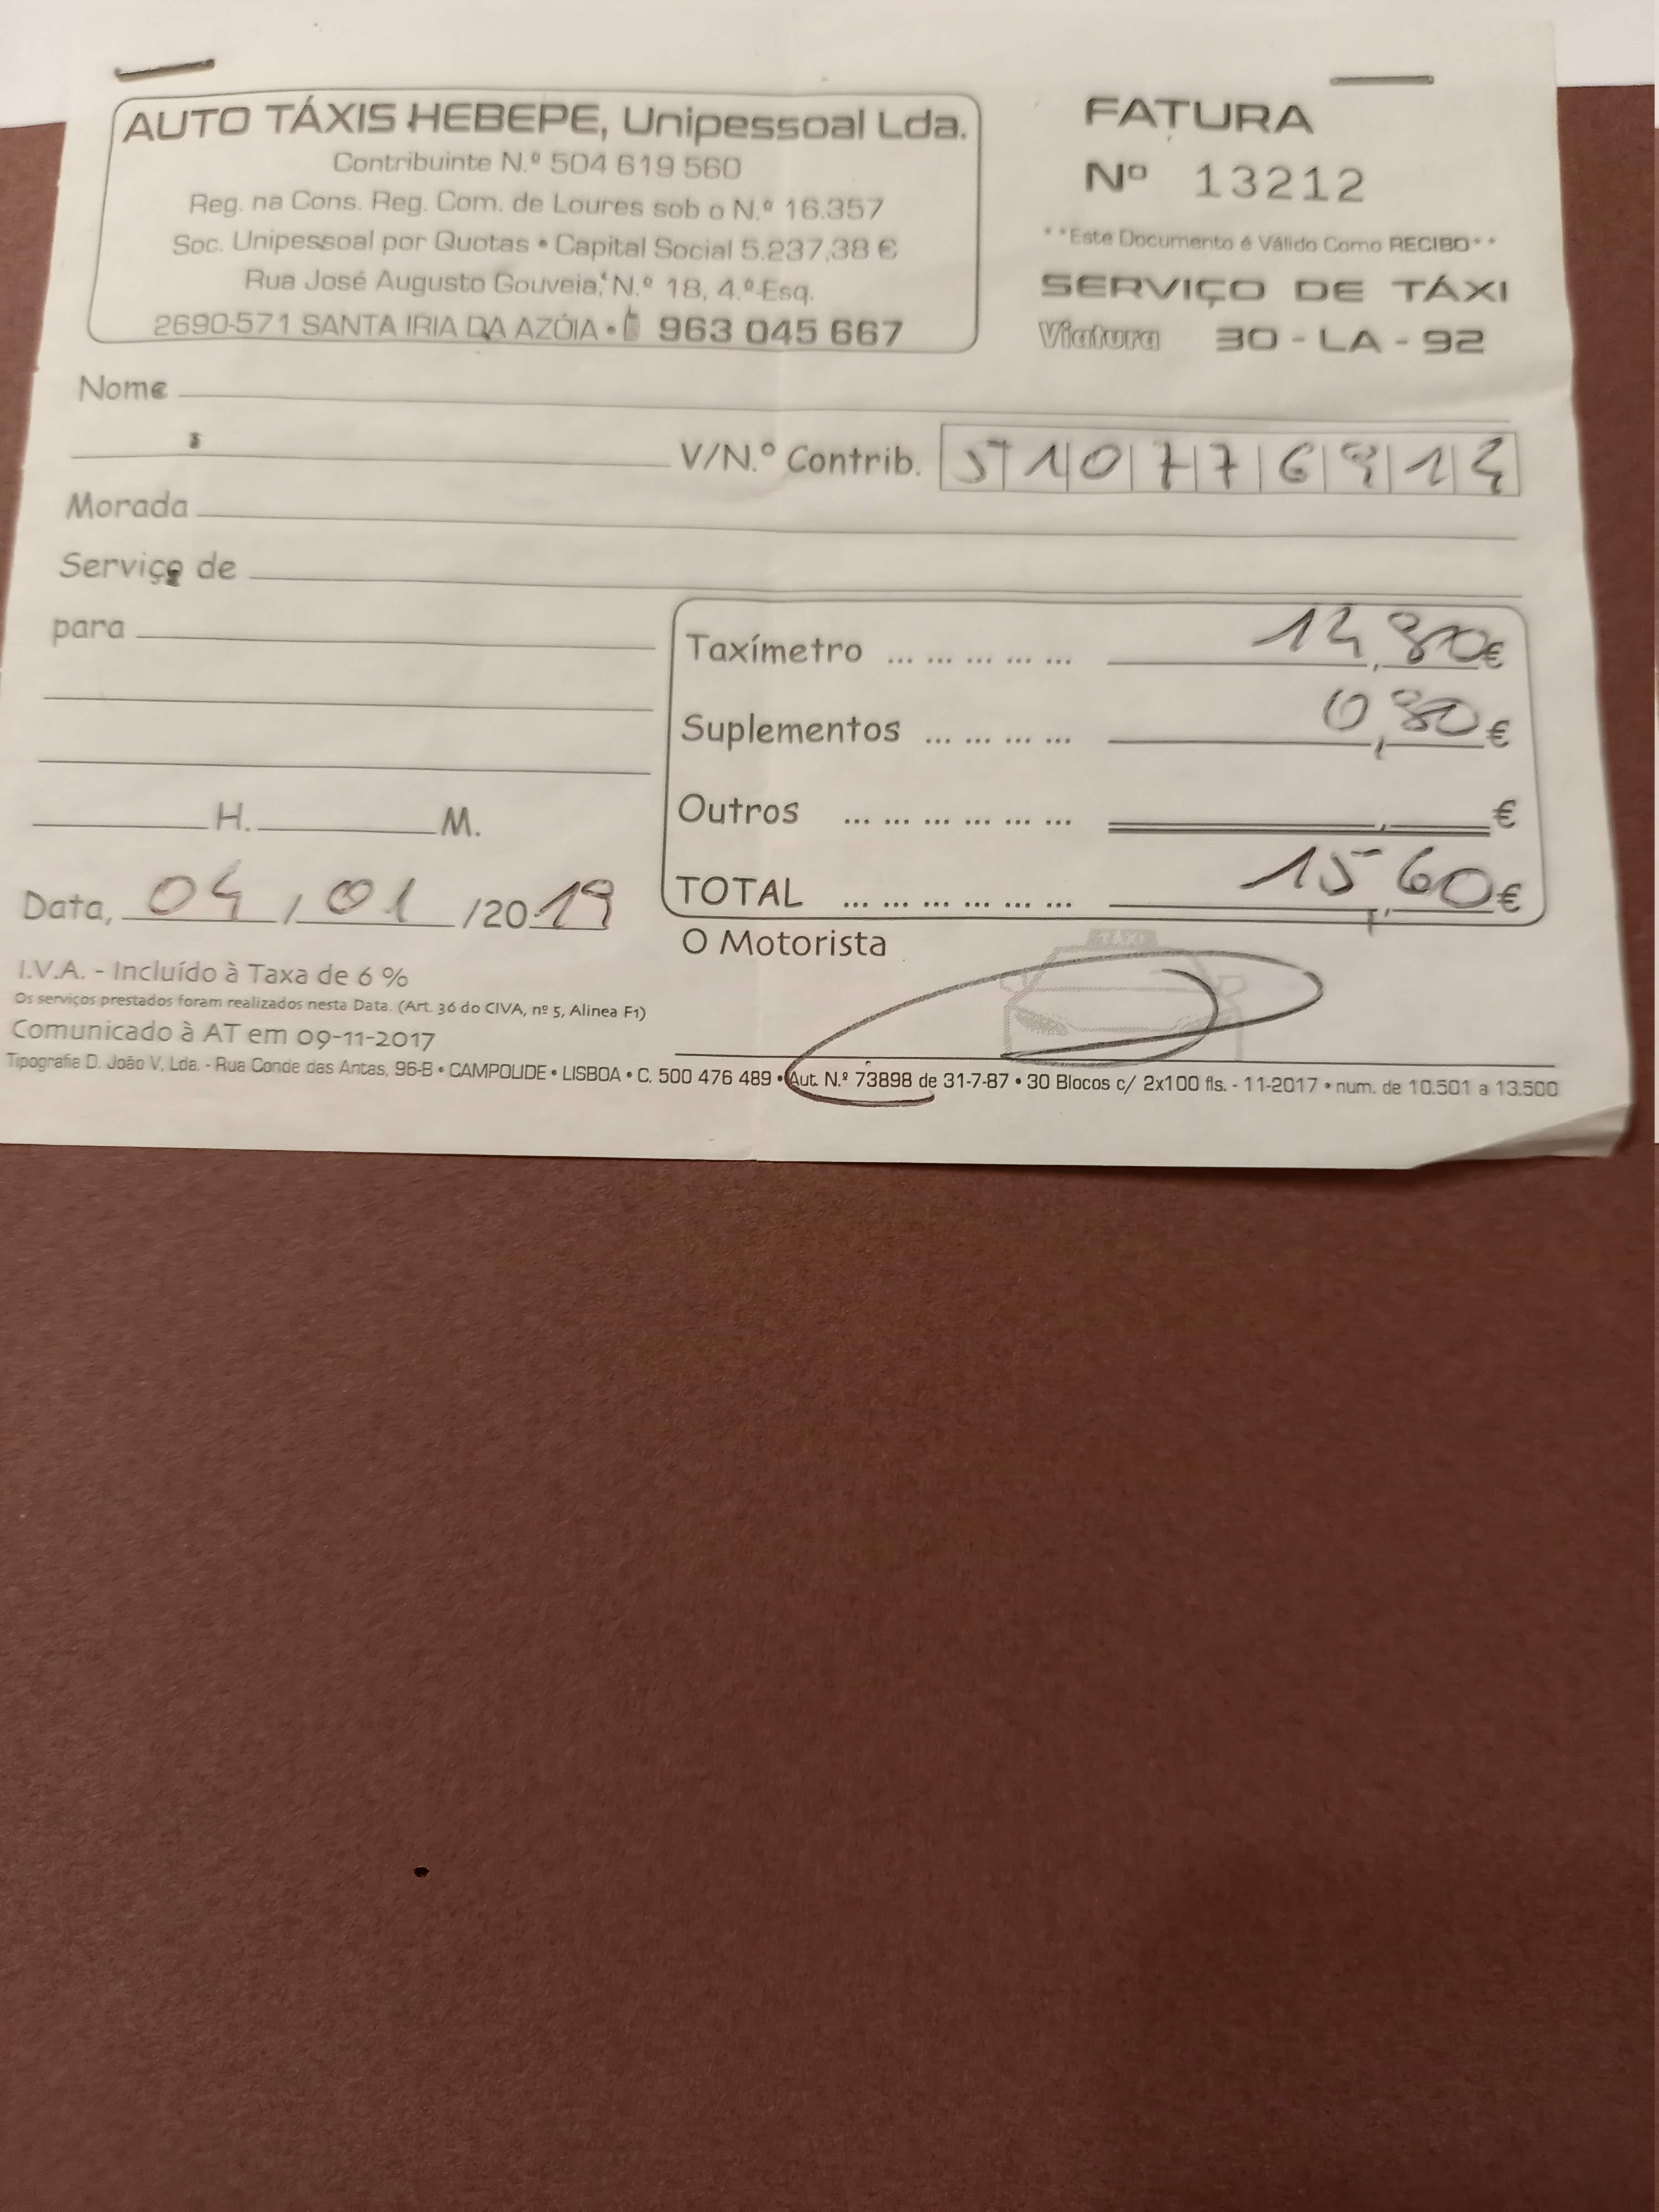 AUTO TÁXIS HEBEPE, Unipessoal Lda.
Contribuinte N.º 504 619 560
Reg. na Cons. Reg. Com. de Loures sob o N.º 16.357
Soc. Unipessoal por Quotas • Capital Social 5.237,38 €
Rua José Augusto Gouveia, N.º 18, 4.º Esq.
2690-571 SANTA IRIA DA AZÓIA • 963 045 667
FATURA
Nº 13212
**Este Documento é Válido Como RECIBO**
SERVIÇO DE TÁXI
Viatura 30-LA-92
Nome
V/N.º Contrib. 510776914
Morada
Serviço de
para
Taxímetro ... ... ... ... ... 14,80€
Suplementos ... ... ... ... 0,80€
Outros ... ... ... ... ... ... , €
TOTAL ... ... ... ... ... ... 15,60€
H. M.
Data, 04 / 01 /2019
O Motorista
TÁXI
I.V.A. - Incluído à Taxa de 6 %
Os serviços prestados foram realizados nesta Data. (Art. 36 do CIVA, nº 5, Alinea F1)
Comunicado à AT em 09-11-2017
Tipografia D. João V, Lda. - Rua Conde das Antas, 96-B • CAMPOLIDE • LISBOA • C. 500 476 489 • Aut. N.º 73898 de 31-7-87 • 30 Blocos c/ 2x100 fls. - 11-2017 • num. de 10.501 a 13.500